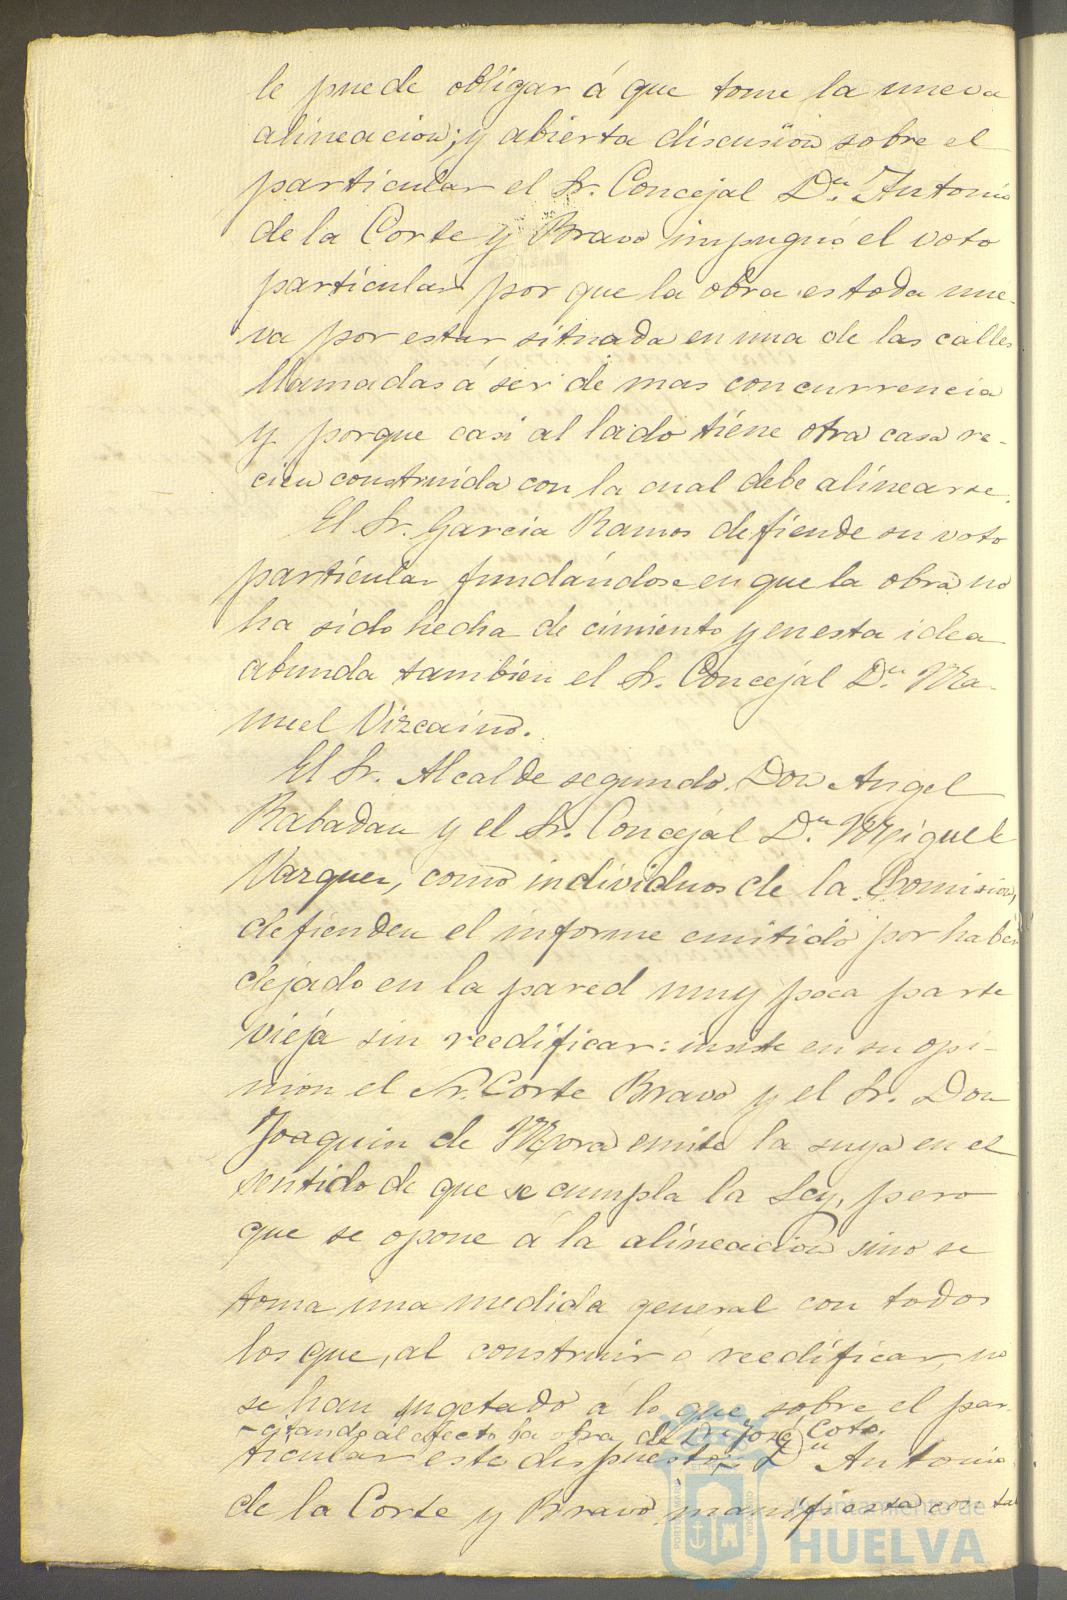 le puede obligar á que tome la nueva
alineacion; y abierta discusion sobre el
particular el Sr. Concejal Dn. Antonio
de la Corte y Bravo impugnó el voto
particular por que la obra es toda nue-
va por estar situada en una de las calles
llamadas á ser de mas concurrencia
y porque casi al lado tiene otra casa re-
cien construida con la cual debe alinearse.
El Sr. Garcia Ramos defiende su voto
particular fundándose en que la obra no
ha sido hecha de cimiento y en esta idea
abunda tambien el Sr. Concejal Dn. Ma-
nuel Vizcaino.
El Sr. Alcalde segundo Don Angel
Rabadan y el Sr. Concejal Dn. Miguel
Vazquez, como individuos de la Comision,
defienden el informe emitido por haber
dejado en la pared muy poca parte
vieja sin reedificar: insiste en su opi-
nion el Sr. Corte Bravo y el Sr. Don
Joaquin de Mora emite la suya en el
sentido de que se cumpla la Ley, pero
que se opone á la alineacion sino se
toma una medida general con todos
los que, al construir ó reedificar, no
se han sugetado á lo que sobre el par-
-citando al efecto la obra de Dn. José Coto.
ticular este dispuesto; Dn Antonio
de la Corte y Bravo manifiesta con ta
Ayuntamiento de
HUELVA